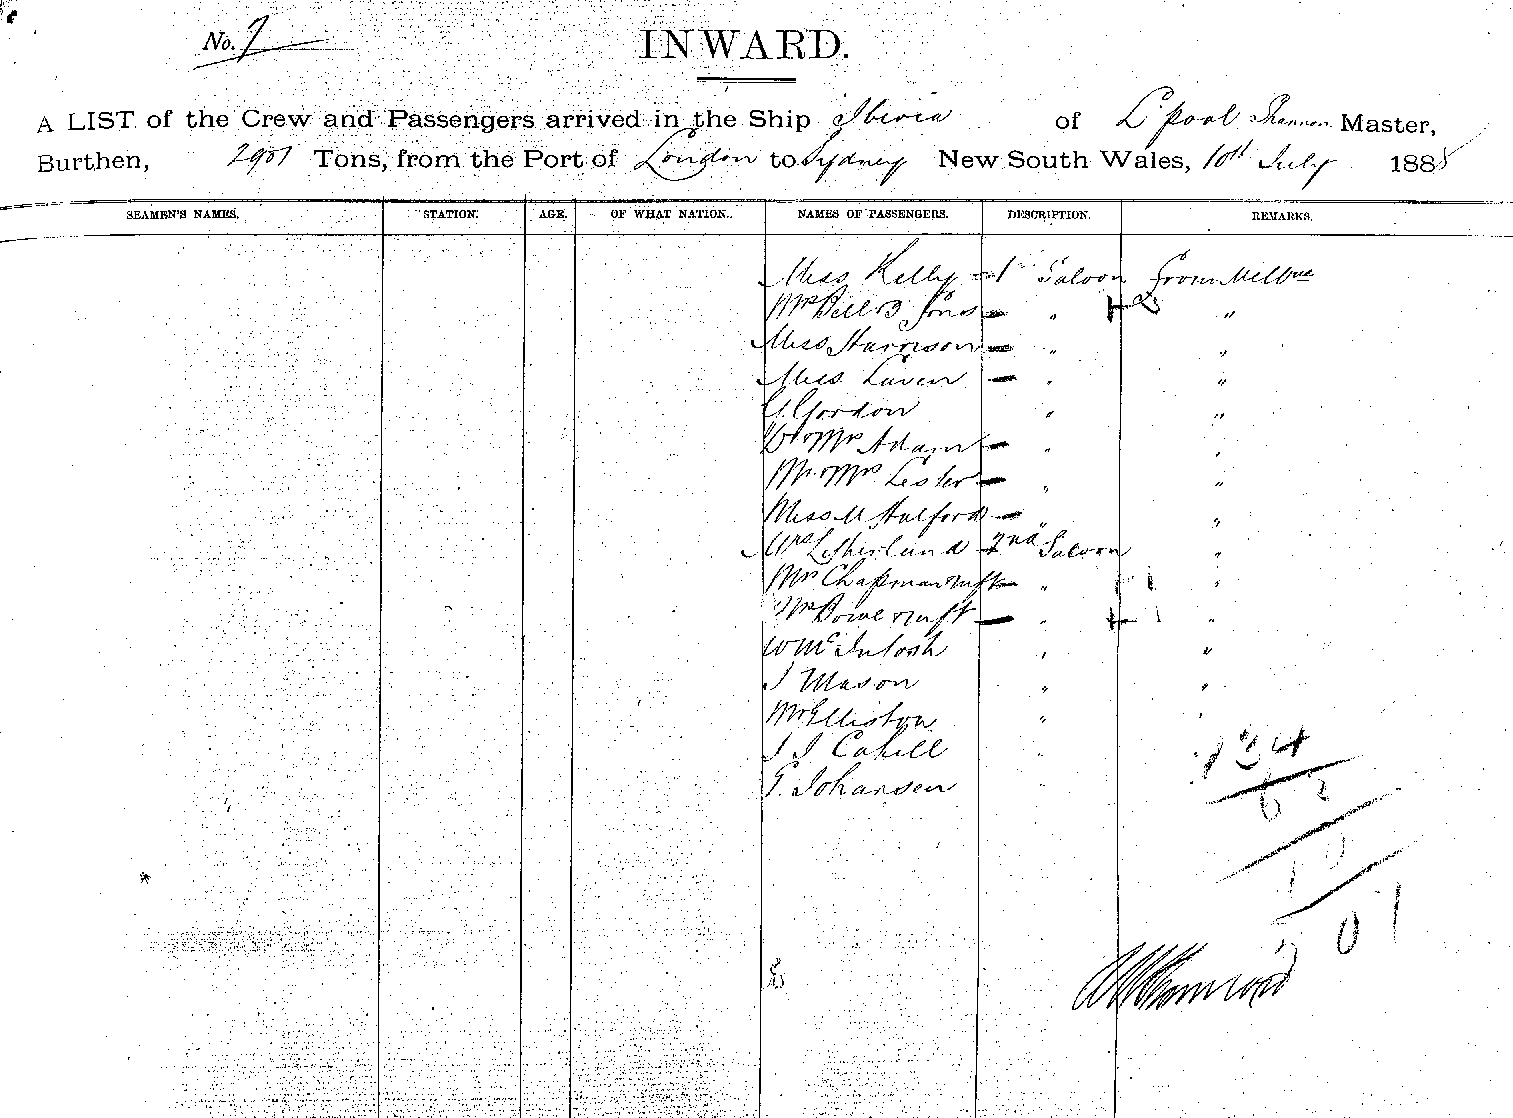 No. 7
INWARD.
A LIST of the Crew and Passengers arrived in the Ship Iberia of L'pool Shannon Master,
Burthen, 2901 Tons, from the Port of London to Sydney New South Wales, 10th July 1888
SEAMEN'S NAMES. STATION. AGE. OF WHAT NATION. NAMES OF PASSENGERS. DESCRIPTION. REMARKS.
Miss Kelly 1 Saloon from Melbne
Mrs Bell & 3 " 2 "
Miss Harrison " "
Miss Laven " "
G. Gordon " "
& Mrs Adam " "
Mr & Mrs Lester " "
Miss M Halford " "
Mrs Litherland 2nd Saloon "
Mrs Chapman & inft " 1 "
Mrs Bowe & inft " 1 "
W McIntosh " "
J Mason " "
Mr Elliston " "
J J Cahill "
G. Johansen "
134
62
10
01